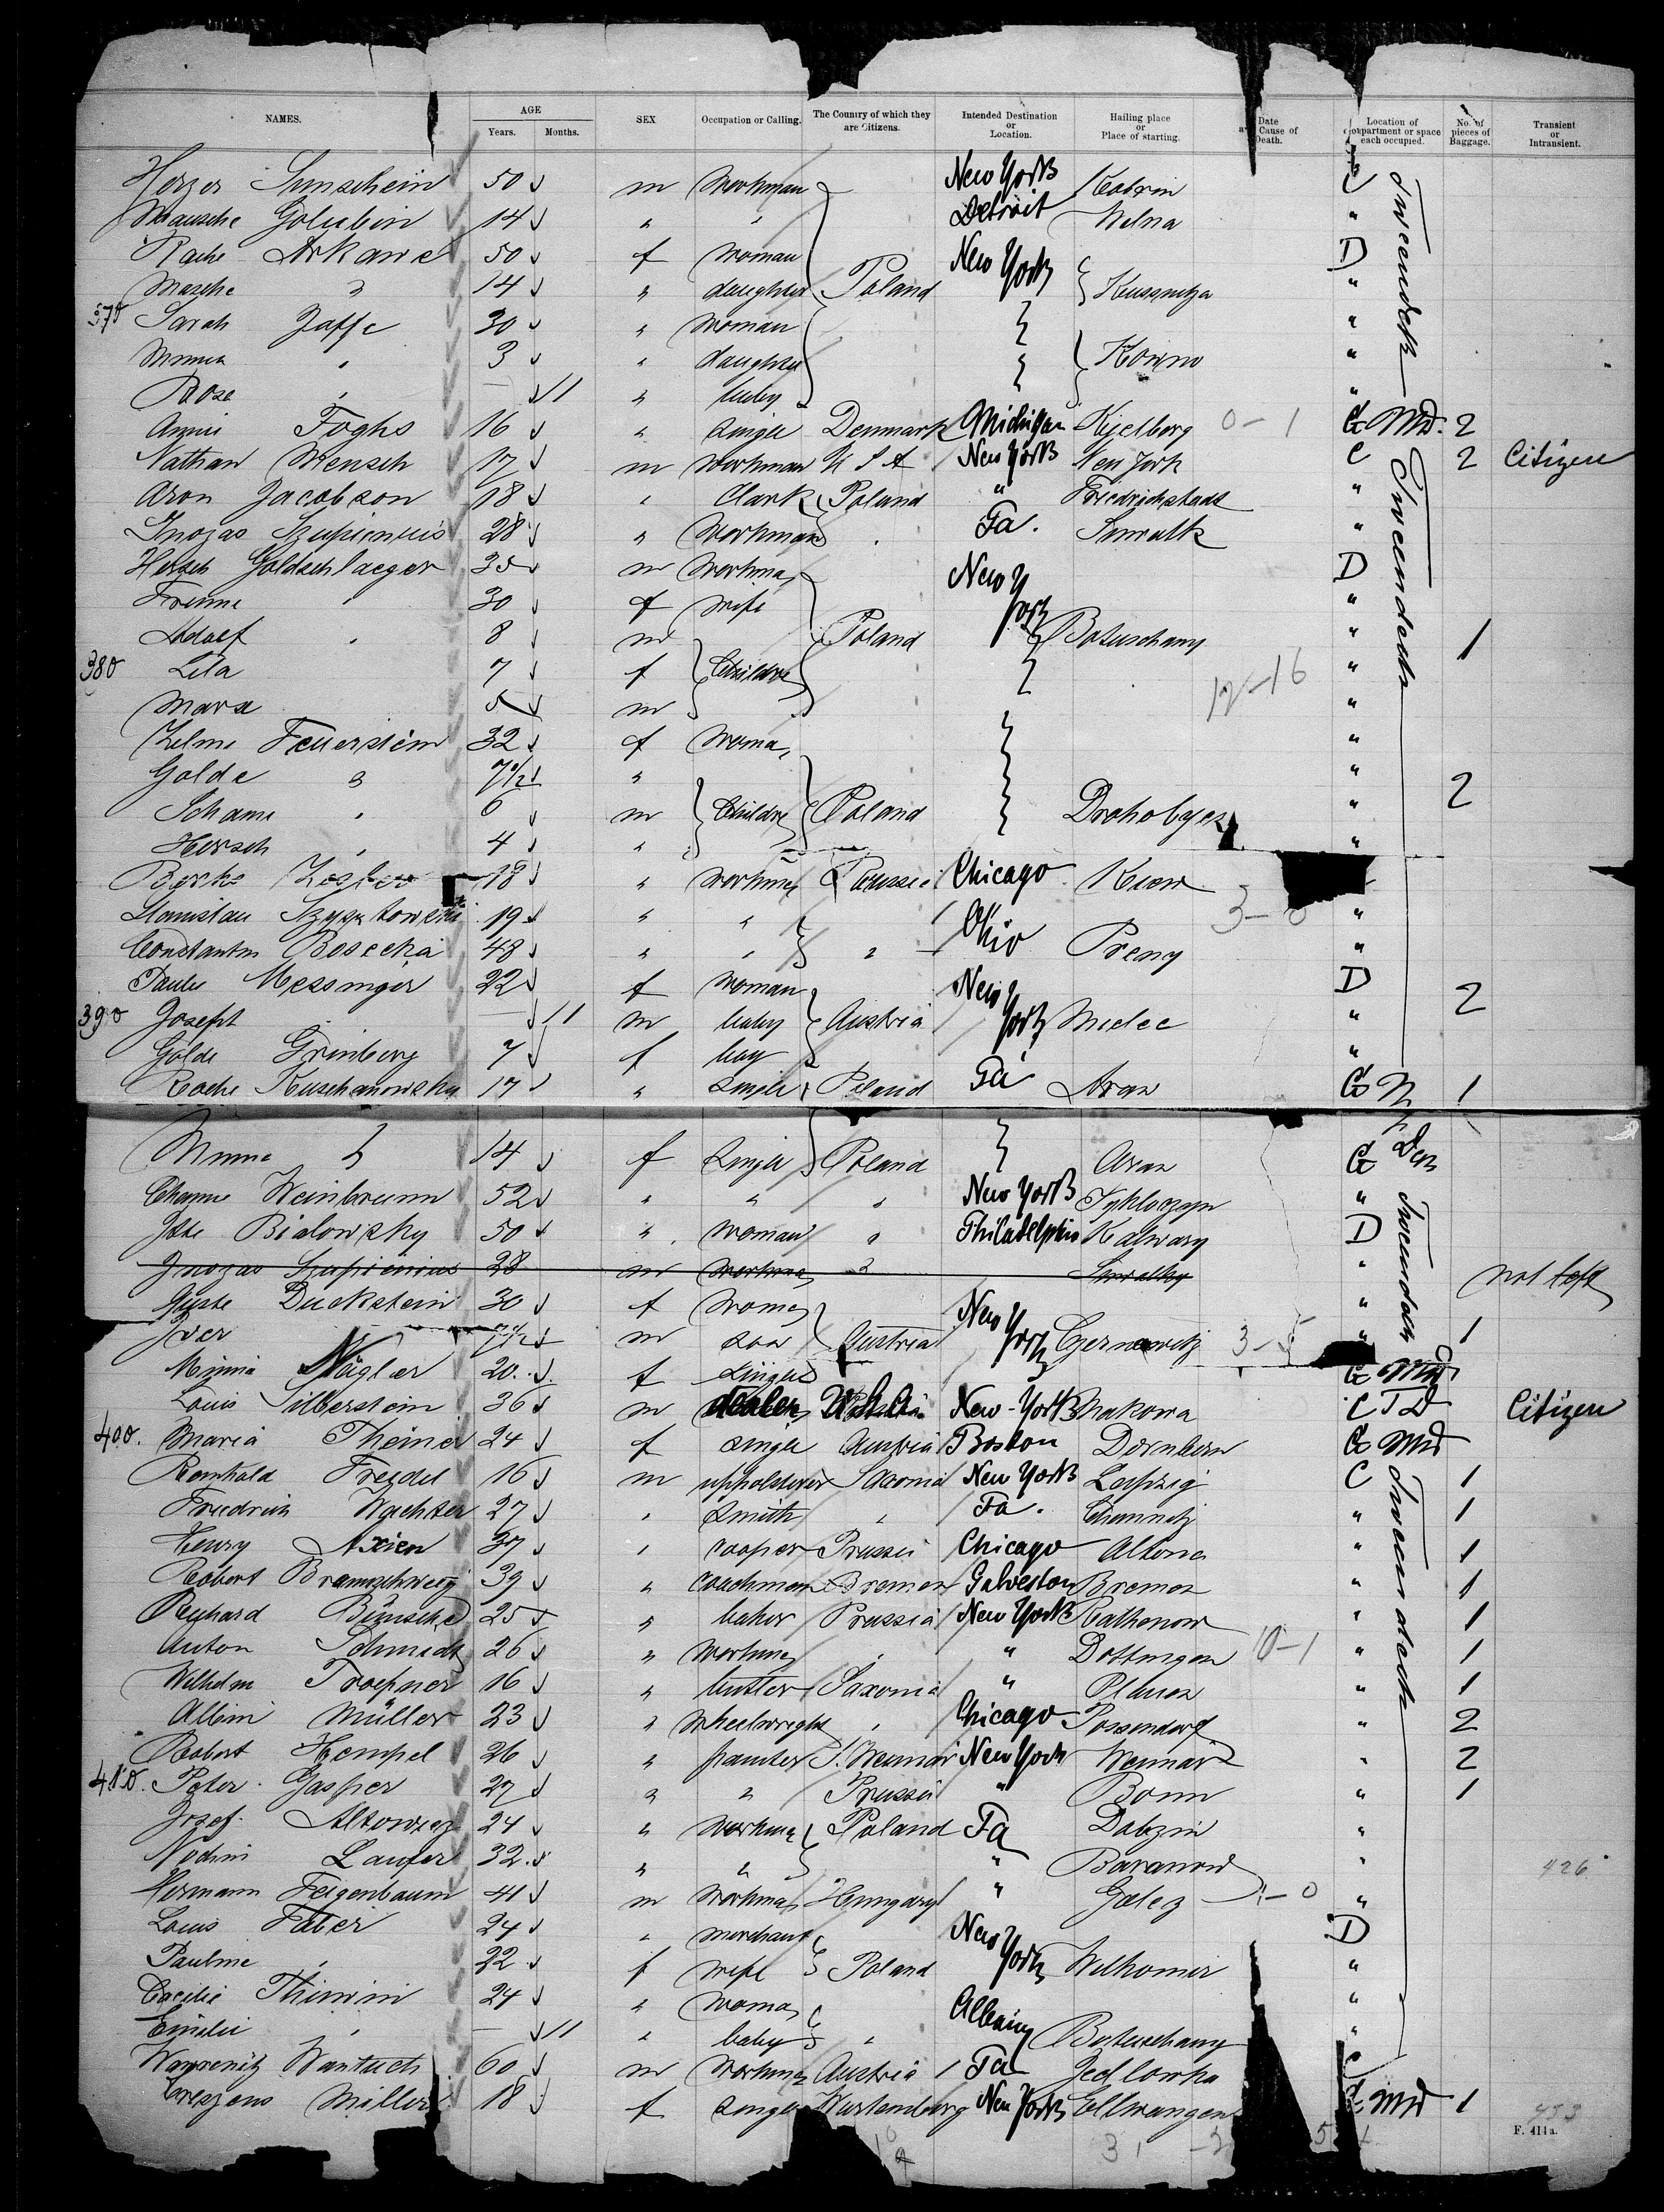 NAMES. AGE Years. Months. SEX Occupation or Calling. The Country of which they are Citizens. Intended Destination or Location. Hailing place or Place of starting. Date Cause of Death. Location of compartment or space each occupied. No. of pieces of Baggage. Transient or Intransient.
Herzer Sunschein 50 m Workman New York Kobrin C
Mausche Golubin 14 " " Detroit Wilna "
Rache Arkawe 50 f Woman New York D
Masche " 14 " daughter Poland Kussnitza "
370 Sarah Jaffe 30 " Woman "
Minna " 3 " daughter Kowno "
Rose " 11 " baby "
Tweendeck
Annie Foghs 16 " Single Denmark Michigan Kjelberg 0-1 G Md. 2
Nathan Mensch 17 m Workman U S A New York New York C 2 Citizen
Aron Jacobson 18 " Clark Poland " Friedrichstadt "
Inozas Szupienius 28 " Workman " Pa. Suwalk "
Hersch Goldschlaeger 35 m Workma New York D
Freime " 30 f Wife "
Adolf " 8 m Poland Botuschany " 1
380 Lila 7 f Childre "
Marx 5 m 12-16 "
Zelma Feuerstein 32 f Woma "
Golde " 7 1/2 " "
Schame " 6 m Childre Poland Drohobycz " 2
Hersch " 4 " "
Tweendeck
Berke 18 " Workma Russia Chicago Kiew
Stanislau Szyszkowski 19 " " Ohio 3-0 "
Constantin Rosecka 48 " " " Preny "
Paule Messinger 22 f Woman New York D
390 Joseph 11 m baby Austria Mielec " 2
Golde Grinberg 7 f "
Roche Kuschanowska 17 " Single Poland Pa Aran G 1
Minne " 14 f Single Poland Aran G
Chame Weinbrunn 52 " " " New York Tykloczyn "
Jste Bialowsky 50 " Woman " Philadelphia Kalwary D
Inozas Szupienius 28 m Workma " Suwalky " not left
Guste Duckstein 30 f Woma New York "
Iver 7 1/2 m Son Austria Czernowitz 3-5 " 1
Tweendeck
Minnie Nägler 20 f Single G Md
Louis Silberstein 36 m dealer U.S.A. New-York Makowa C T D Citizen
400. Maria Theiner 24 f Single Austria Boston Dornbirn G Md
Reinhold Freidel 16 m uppolsterer Saxonia New York Leipzig C 1
Friedrich Wachter 27 " Smith " Pa. Chemnitz " 1
Henry Axien 37 " cooper Prussia Chicago Altona " 1
Robert Bramschweig 39 " coachman Bremen Galveston Bremen " 1
Richard Bünsche 25 " baker Prussia New York Rathenow " 1
Anton Schmidt 26 " Workma " " Dottingen 10-1 " 1
Wilhelm Troepner 16 " butler Saxonia " Plauen " 1
Albin Müller 23 " Wheelwright " Chicago Possendorf " 2
Robert Hempel 26 " painter S. Weimar New York Weimar " 2
410. Peter Gasper 27 " " Prussia " Bonn " 1
Jozef Altowicz 24 " Workma Poland Pa Dobzin "
Laufer 32 " " " Baranow " 426
Hermann Feigenbaum 41 m Workma Hungary " Galez 1-0 "
Louis Faber 24 " merchant New York D
Pauline " 22 f Wife Poland Wilkomir "
Cacilie Thirwin 24 " Woma Albany "
Emilie " 11 " baby " Botuschany "
Tweendeck
Wantuch 60 m Workma Austria Pa Jedlowka C
Creszens Miller 18 f Single Wurtenberg New York Ellwangen G Md 1
433
F. 414a.